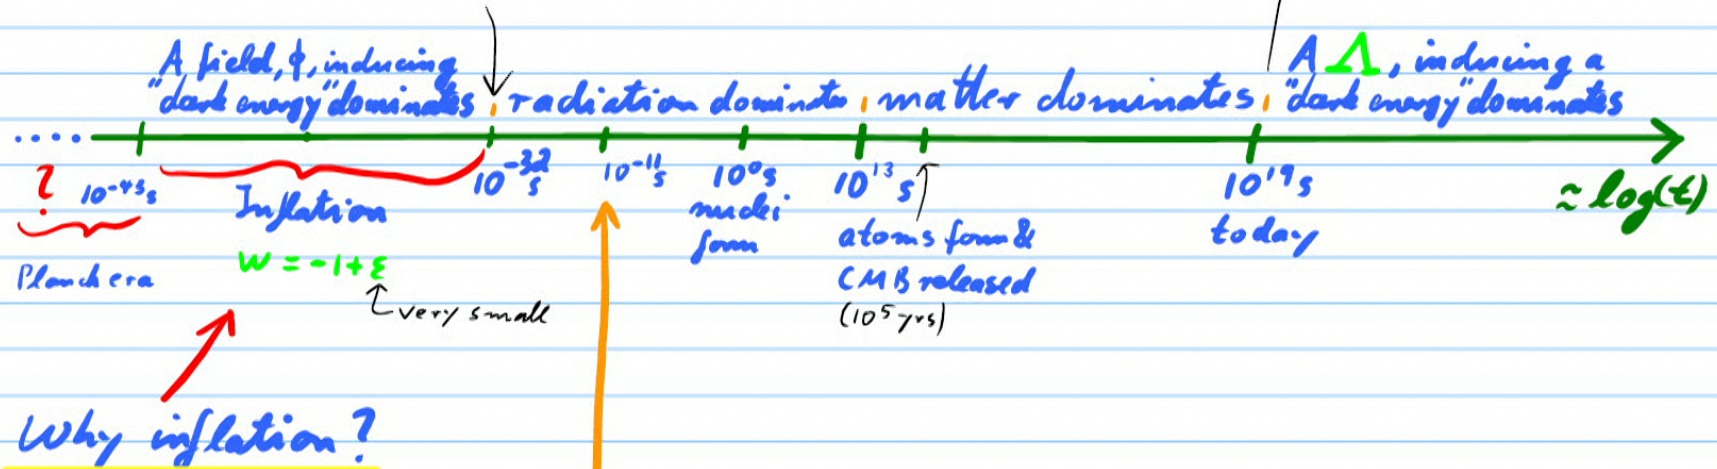 A field, ϕ, inducing
"dark energy" dominates
radiation dominates
matter dominates
A Λ, inducing a
"dark energy" dominates
....
?
10⁻⁴³s
Planck era
Inflation
w = -1+ε
very small
10⁻³²s
10⁻¹¹s
10⁰s
nuclei
form
10¹³s
atoms form &
CMB released
(10⁵ yrs)
10¹⁹s
today
≈ log(t)
Why inflation?